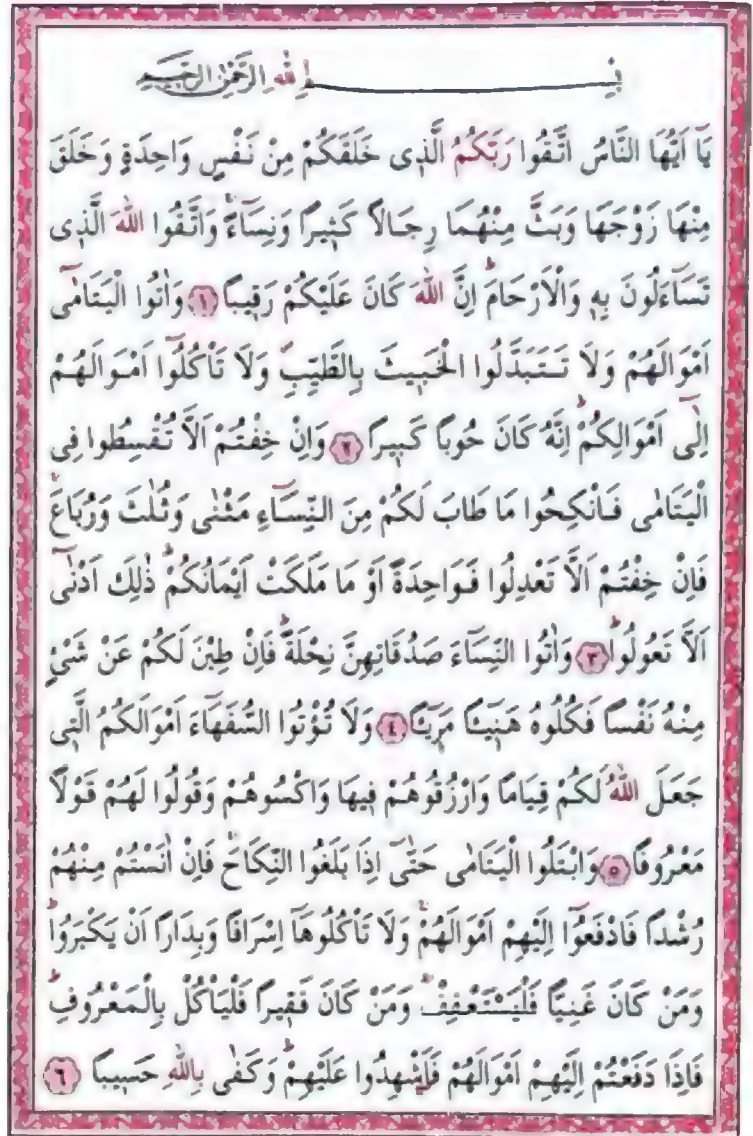 بِسْمِ اللهِ الرَّحْمٰنِ الرَّحِيمِ
يَٓا اَيُّهَا النَّاسُ اتَّقُوا رَبَّكُمُ الَّذٖى خَلَقَكُمْ مِنْ نَفْسٍ وَاحِدَةٍ وَخَلَقَ
مِنْهَا زَوْجَهَا وَبَثَّ مِنْهُمَا رِجَالًا كَثٖيرًا وَنِسَٓاءًۚ وَاتَّقُوا اللهَ الَّذٖى
تَسَٓاءَلُونَ بِهٖ وَالْاَرْحَامَؕ اِنَّ اللهَ كَانَ عَلَيْكُمْ رَقٖيبًا ﴿١﴾ وَاٰتُوا الْيَتَامٰٓى
اَمْوَالَهُمْ وَلَا تَتَبَدَّلُوا الْخَبٖيثَ بِالطَّيِّبِ وَلَا تَاْكُلُٓوا اَمْوَالَهُمْ
اِلٰٓى اَمْوَالِكُمْؕ اِنَّهُ كَانَ حُوبًا كَبٖيرًا ﴿٢﴾ وَاِنْ خِفْتُمْ اَلَّا تُقْسِطُوا فِى
الْيَتَامٰى فَانْكِحُوا مَا طَابَ لَكُمْ مِنَ النِّسَٓاءِ مَثْنٰى وَثُلٰثَ وَرُبَاعَۚ
فَاِنْ خِفْتُمْ اَلَّا تَعْدِلُوا فَوَاحِدَةً اَوْ مَا مَلَكَتْ اَيْمَانُكُمْؕ ذٰلِكَ اَدْنٰٓى
اَلَّا تَعُولُواؕ ﴿٣﴾ وَاٰتُوا النِّسَٓاءَ صَدُقَاتِهِنَّ نِحْلَةًؕ فَاِنْ طِبْنَ لَكُمْ عَنْ شَىْءٍ
مِنْهُ نَفْسًا فَكُلُوهُ هَنٖيـًٔا مَرٖيـًٔا ﴿٤﴾ وَلَا تُؤْتُوا السُّفَهَٓاءَ اَمْوَالَكُمُ الَّتٖى
جَعَلَ اللهُ لَكُمْ قِيَامًا وَارْزُقُوهُمْ فٖيهَا وَاكْسُوهُمْ وَقُولُوا لَهُمْ قَوْلًا
مَعْرُوفًا ﴿٥﴾ وَابْتَلُوا الْيَتَامٰى حَتّٰٓى اِذَا بَلَغُوا النِّكَاحَۚ فَاِنْ اٰنَسْتُمْ مِنْهُمْ
رُشْدًا فَادْفَعُٓوا اِلَيْهِمْ اَمْوَالَهُمْۚ وَلَا تَاْكُلُوهَٓا اِسْرَافًا وَبِدَارًا اَنْ يَكْبَرُواؕ
وَمَنْ كَانَ غَنِيًّا فَلْيَسْتَعْفِفْۚ وَمَنْ كَانَ فَقٖيرًا فَلْيَاْكُلْ بِالْمَعْرُوفِؕ
فَاِذَا دَفَعْتُمْ اِلَيْهِمْ اَمْوَالَهُمْ فَاَشْهِدُوا عَلَيْهِمْؕ وَكَفٰى بِاللهِ حَسٖيبًا ﴿٦﴾